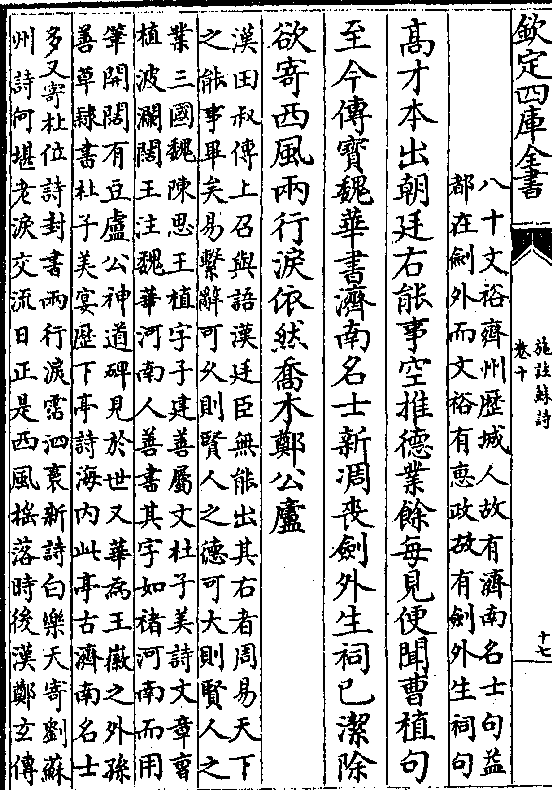 欽定四庫全書
施註蘇詩
卷十
十七
八十文裕齊州歷城人故有濟南名士句益
都在劍外而文裕有惠政故有劍外生祠句
高才本出朝廷右能事空推德業餘每見便聞曹植句
至今傳寶魏華書濟南名士新凋喪劍外生祠已潔除
欲寄西風兩行淚依然喬木鄭公廬
漢田叔傳上召與語漢廷臣無能出其右者周易天下
之能事畢矣易繫辭可久則賢人之德可大則賢人之
業三國魏陳思王植字子建善屬文杜子美詩文章曹
植波瀾闊王注魏華河南人善書其字如褚河南而用
筆開闊有豆盧公神道碑見於世又華為王徽之外孫
善草隸書杜子美宴歷下亭詩海內此亭古濟南名士
多又寄杜位詩封書兩行淚霑洒裛新詩白樂天寄劉蘇
州詩何堪老淚交流日正是西風搖落時後漢鄭玄傳